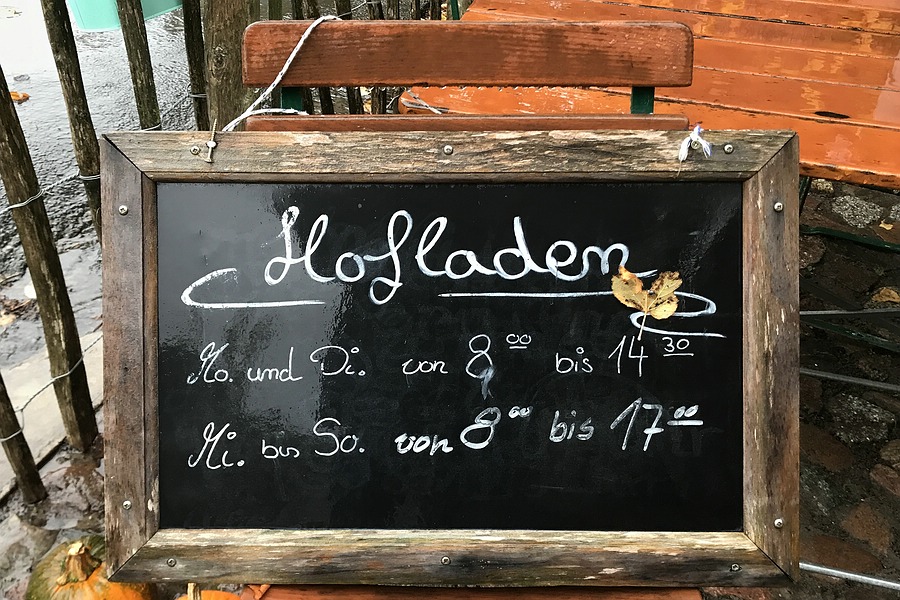 Hofladen
Mo. und Di. von 8⁰⁰ bis 14³⁰
Mi. bis So. von 8⁰⁰ bis 17⁰⁰